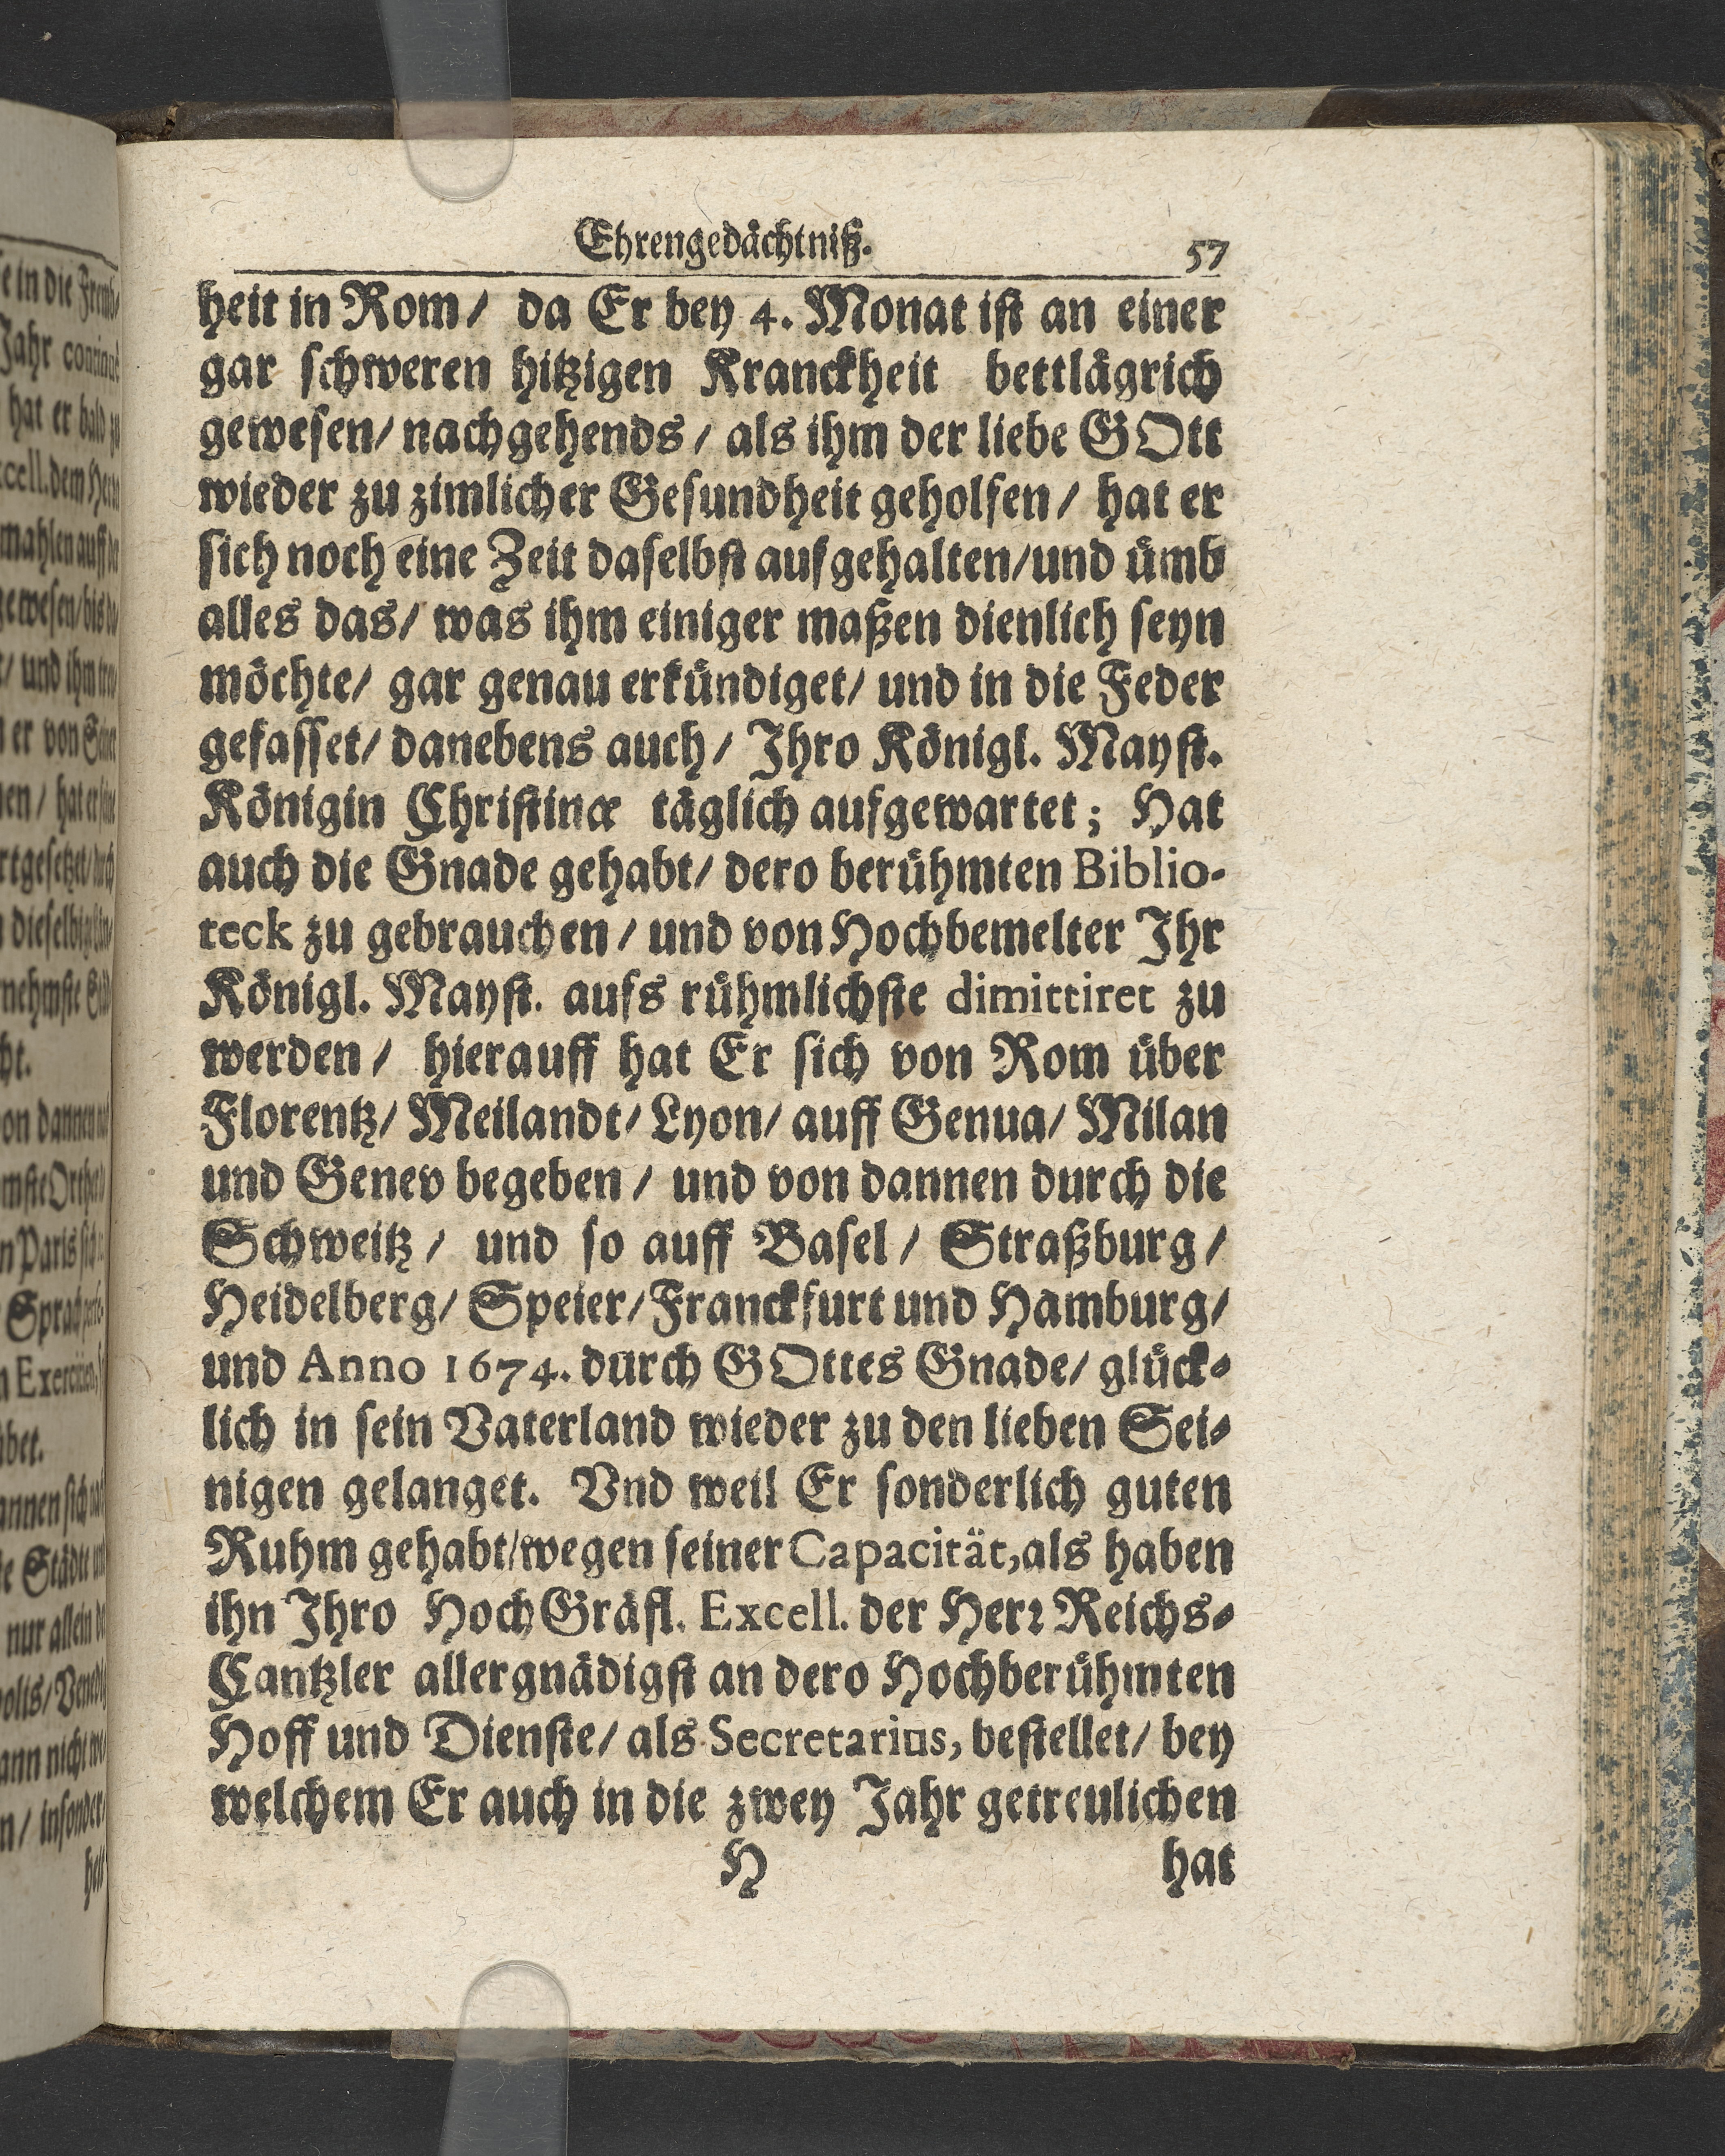 Ehrengedächtniß.
57
heit in Rom/ da Er bey 4. Monat ist an einer
gar schweren hitzigen Kranckheit bettlägrich
gewesen/ nachgehends/ als ihm der liebe GOtt
wieder zu zimlicher Gesundheit geholfen/ hat er
sich noch eine Zeit daselbst aufgehalten/und ümb
alles das/ was ihm einiger maßen dienlich seyn
möchte/ gar genau erkündiget/ und in die Feder
gefasset/ danebens auch/ Ihro Königl. Mayst.
Königin Christinæ täglich aufgewartet; Hat
auch die Gnade gehabt/ dero berühmten Biblio-
teck zu gebrauchen/ und von Hochbemelter Ihr
Königl. Mayst. aufs rühmlichste dimittiret zu
werden/ hierauff hat Er sich von Rom über
Florentz/ Meilandt/ Lyon/ auff Genua/ Milan
und Genev begeben/ und von dannen durch die
Schweitz/ und so auff Basel/ Straßburg/
Heidelberg/ Speier/ Franckfurt und Hamburg/
und Anno 1674. durch GOttes Gnade/ glück-
lich in sein Vaterland wieder zu den lieben Sei-
nigen gelanget. Vnd weil Er sonderlich guten
Ruhm gehabt/wegen seiner Capacität, als haben
ihn Ihro HochGräfl. Excell. der Herꝛ Reichs-
Cantzler allergnädigst an dero Hochberühmten
Hoff und Dienste/ als Secretarius, bestellet/ bey
welchem Er auch in die zwey Jahr getreulichen
H
hat